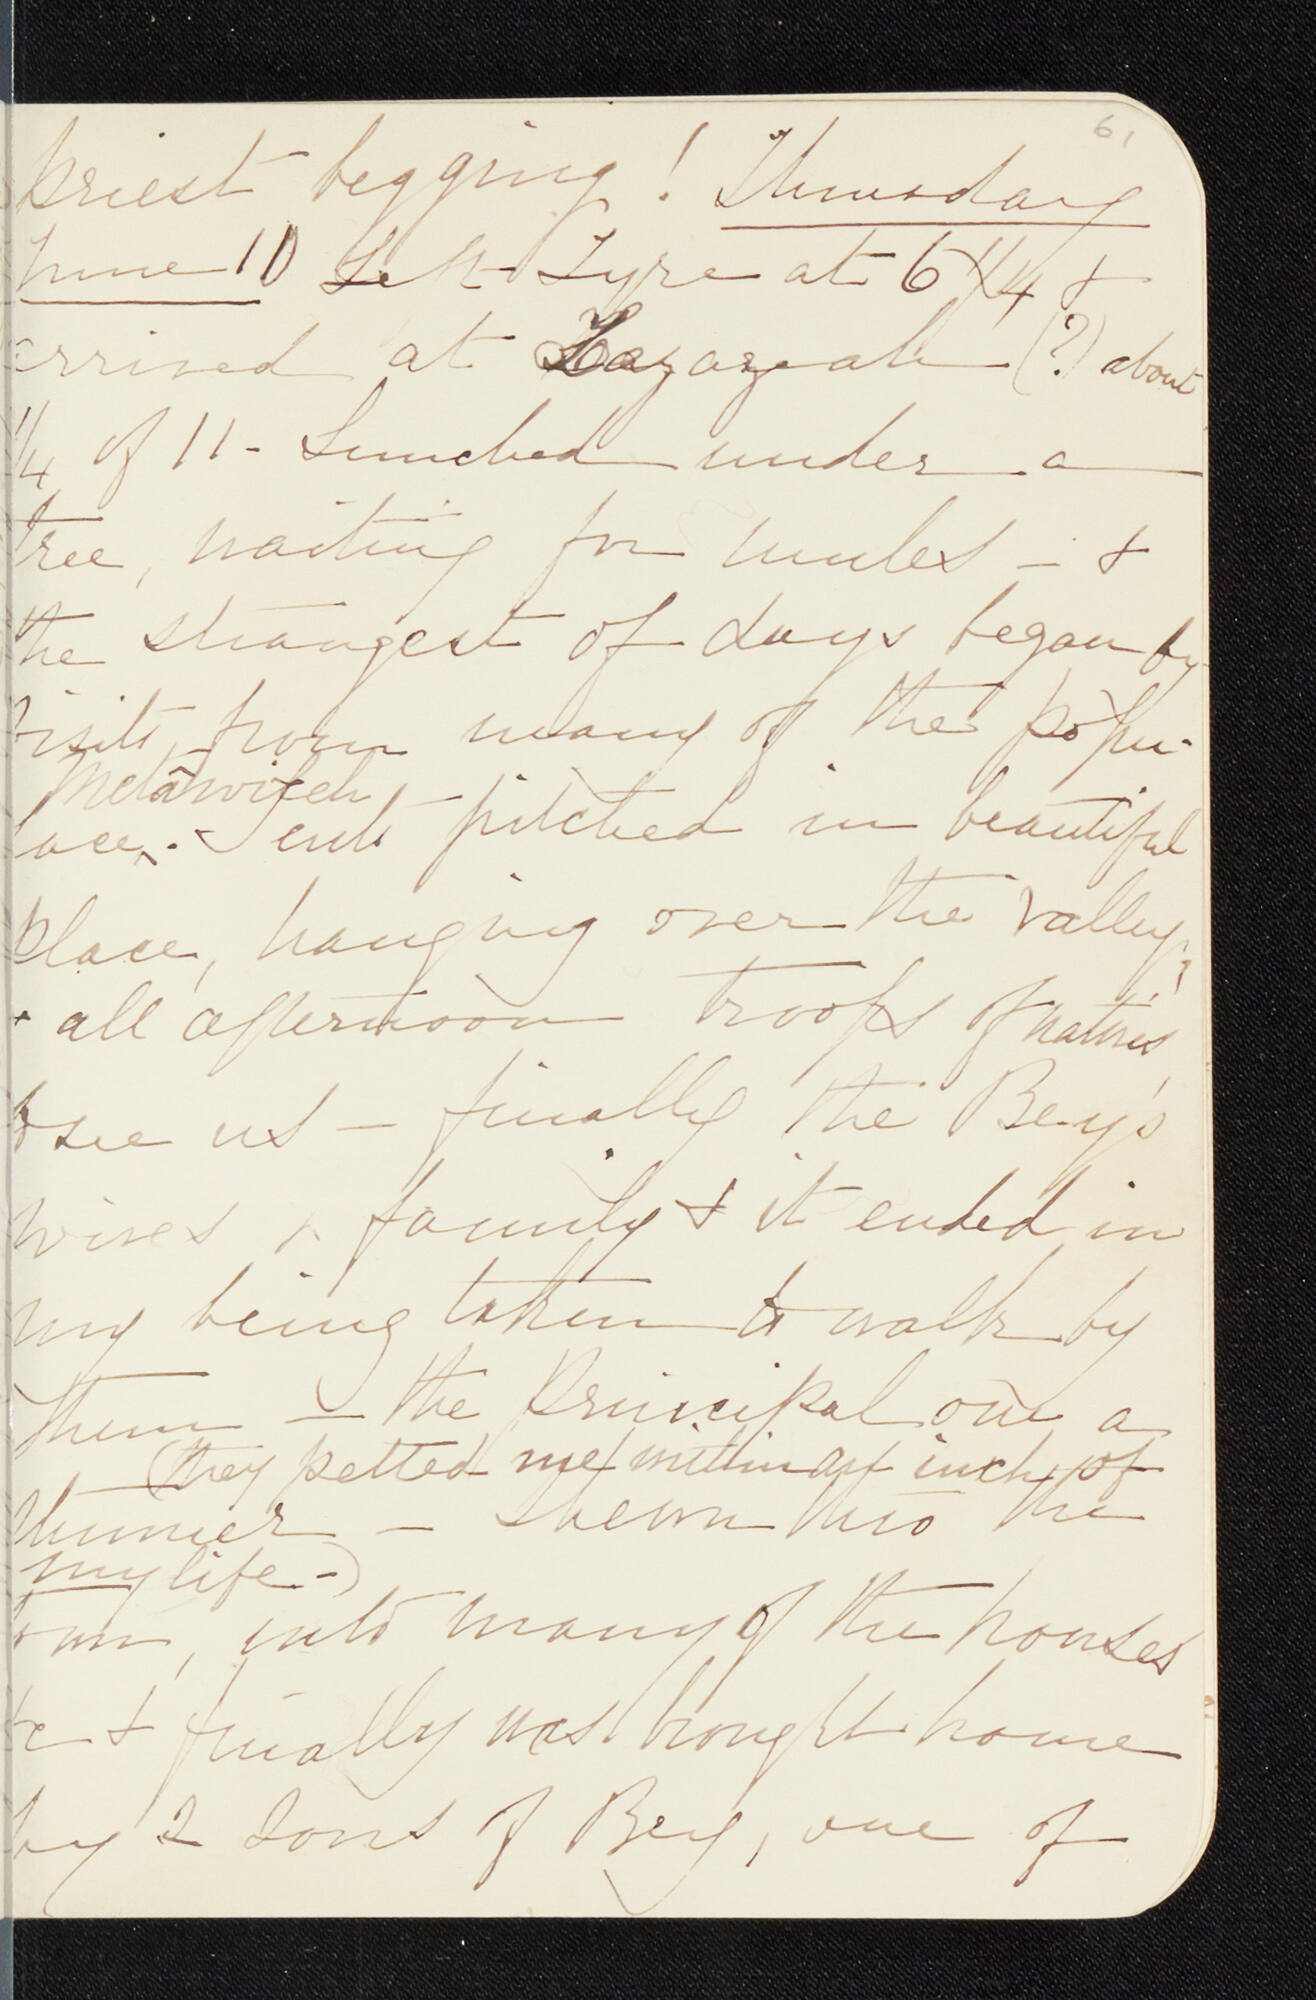 61
priest begging! Thursday
June 10 Left Tyre at 6 1/4 &
arrived at (?) about
1/4 of 11 - Lunched under a
tree, waiting for mules - &
the strangest of days began by
visits from many of the popu-
Metâwileh
lace. Tents pitched in beautiful
place, hanging over the valley,
& all afternoon troops of natives
to see us - finally the Bey's
wives & family & it ended in
my being taken to walk by
them - the principal one a
(they petted me within an inch of
stunner - shewn into the
my life -)
town, into many of the houses
&c & finally was brought home
by 2 sons of Bey, one of